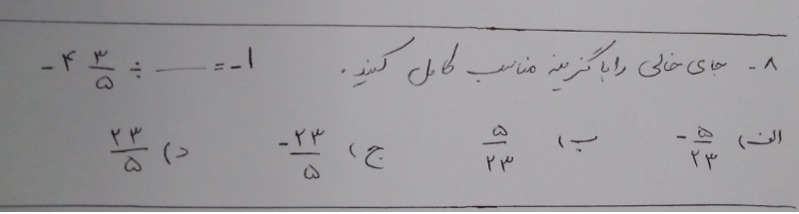 ۸- جای خالی را با گزینه مناسب کامل کنید. -۴ ۳/۵ ÷ — = -۱
الف) -۵/۲۳ ب) ۵/۲۳ ج) -۲۳/۵ د) ۲۳/۵